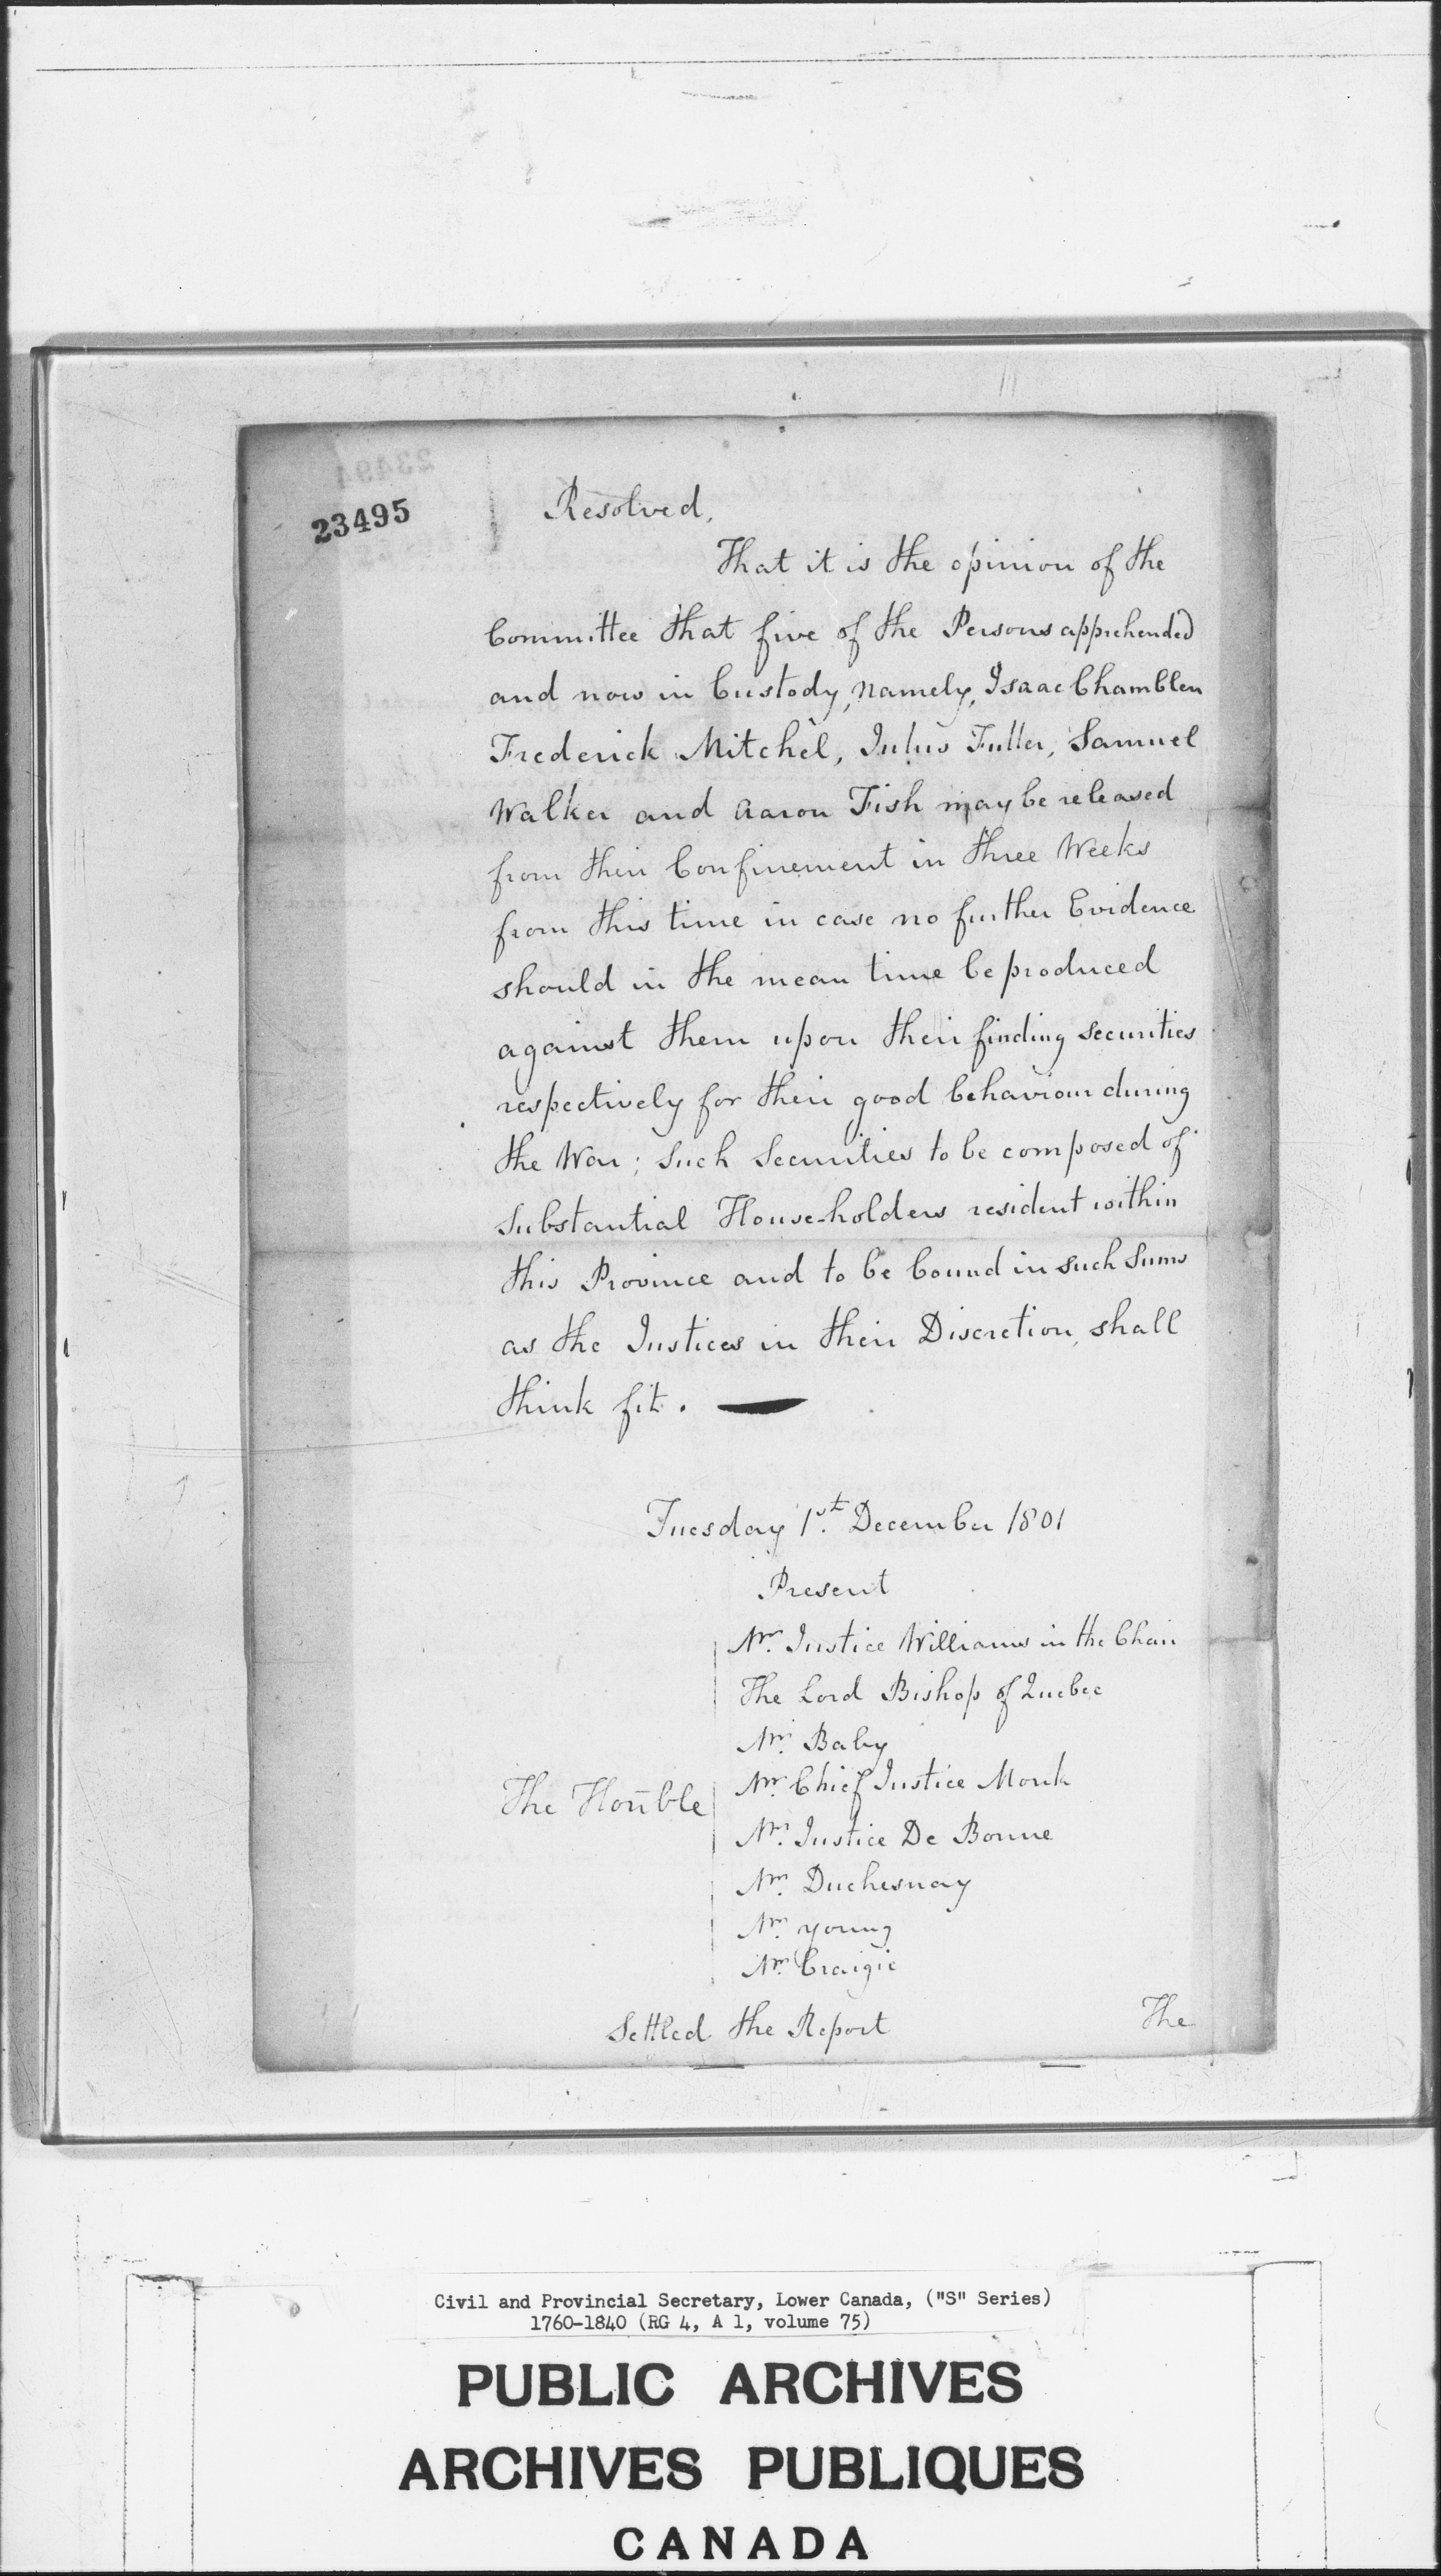 23491
23495
Resolved,
That it is the opinion of the
Committee that five of the Persons apprehended
and now in Custody, namely, Isaac Chamblen
Frederick Mitchel, Julius Fuller, Samuel
Walker and Aaron Fish may be released
from their Confinement in three Weeks
from this time in case no further Evidence
should in the mean time be produced
against them upon their finding securities
respectively for their good behaviour during
the War; such Securities to be composed of
Substantial House-holders resident within
this Province and to be bound in such Sums
as the Justices in their Discretion, shall
think fit.
Tuesday 1st December 1801
Present
Mr. Justice Williams in the Chair
The Lord Bishop of Quebec
Mr. Baby
The Honble Mr. Chief Justice Monk
Mr. Justice De Bonne
Mr. Duchesnay
Mr. Young
Mr. Craigie
Settled the Report The
Civil and Provincial Secretary, Lower Canada, ("S" Series)
1760-1840 (RG 4, A 1, volume 75)
PUBLIC ARCHIVES
ARCHIVES PUBLIQUES
CANADA